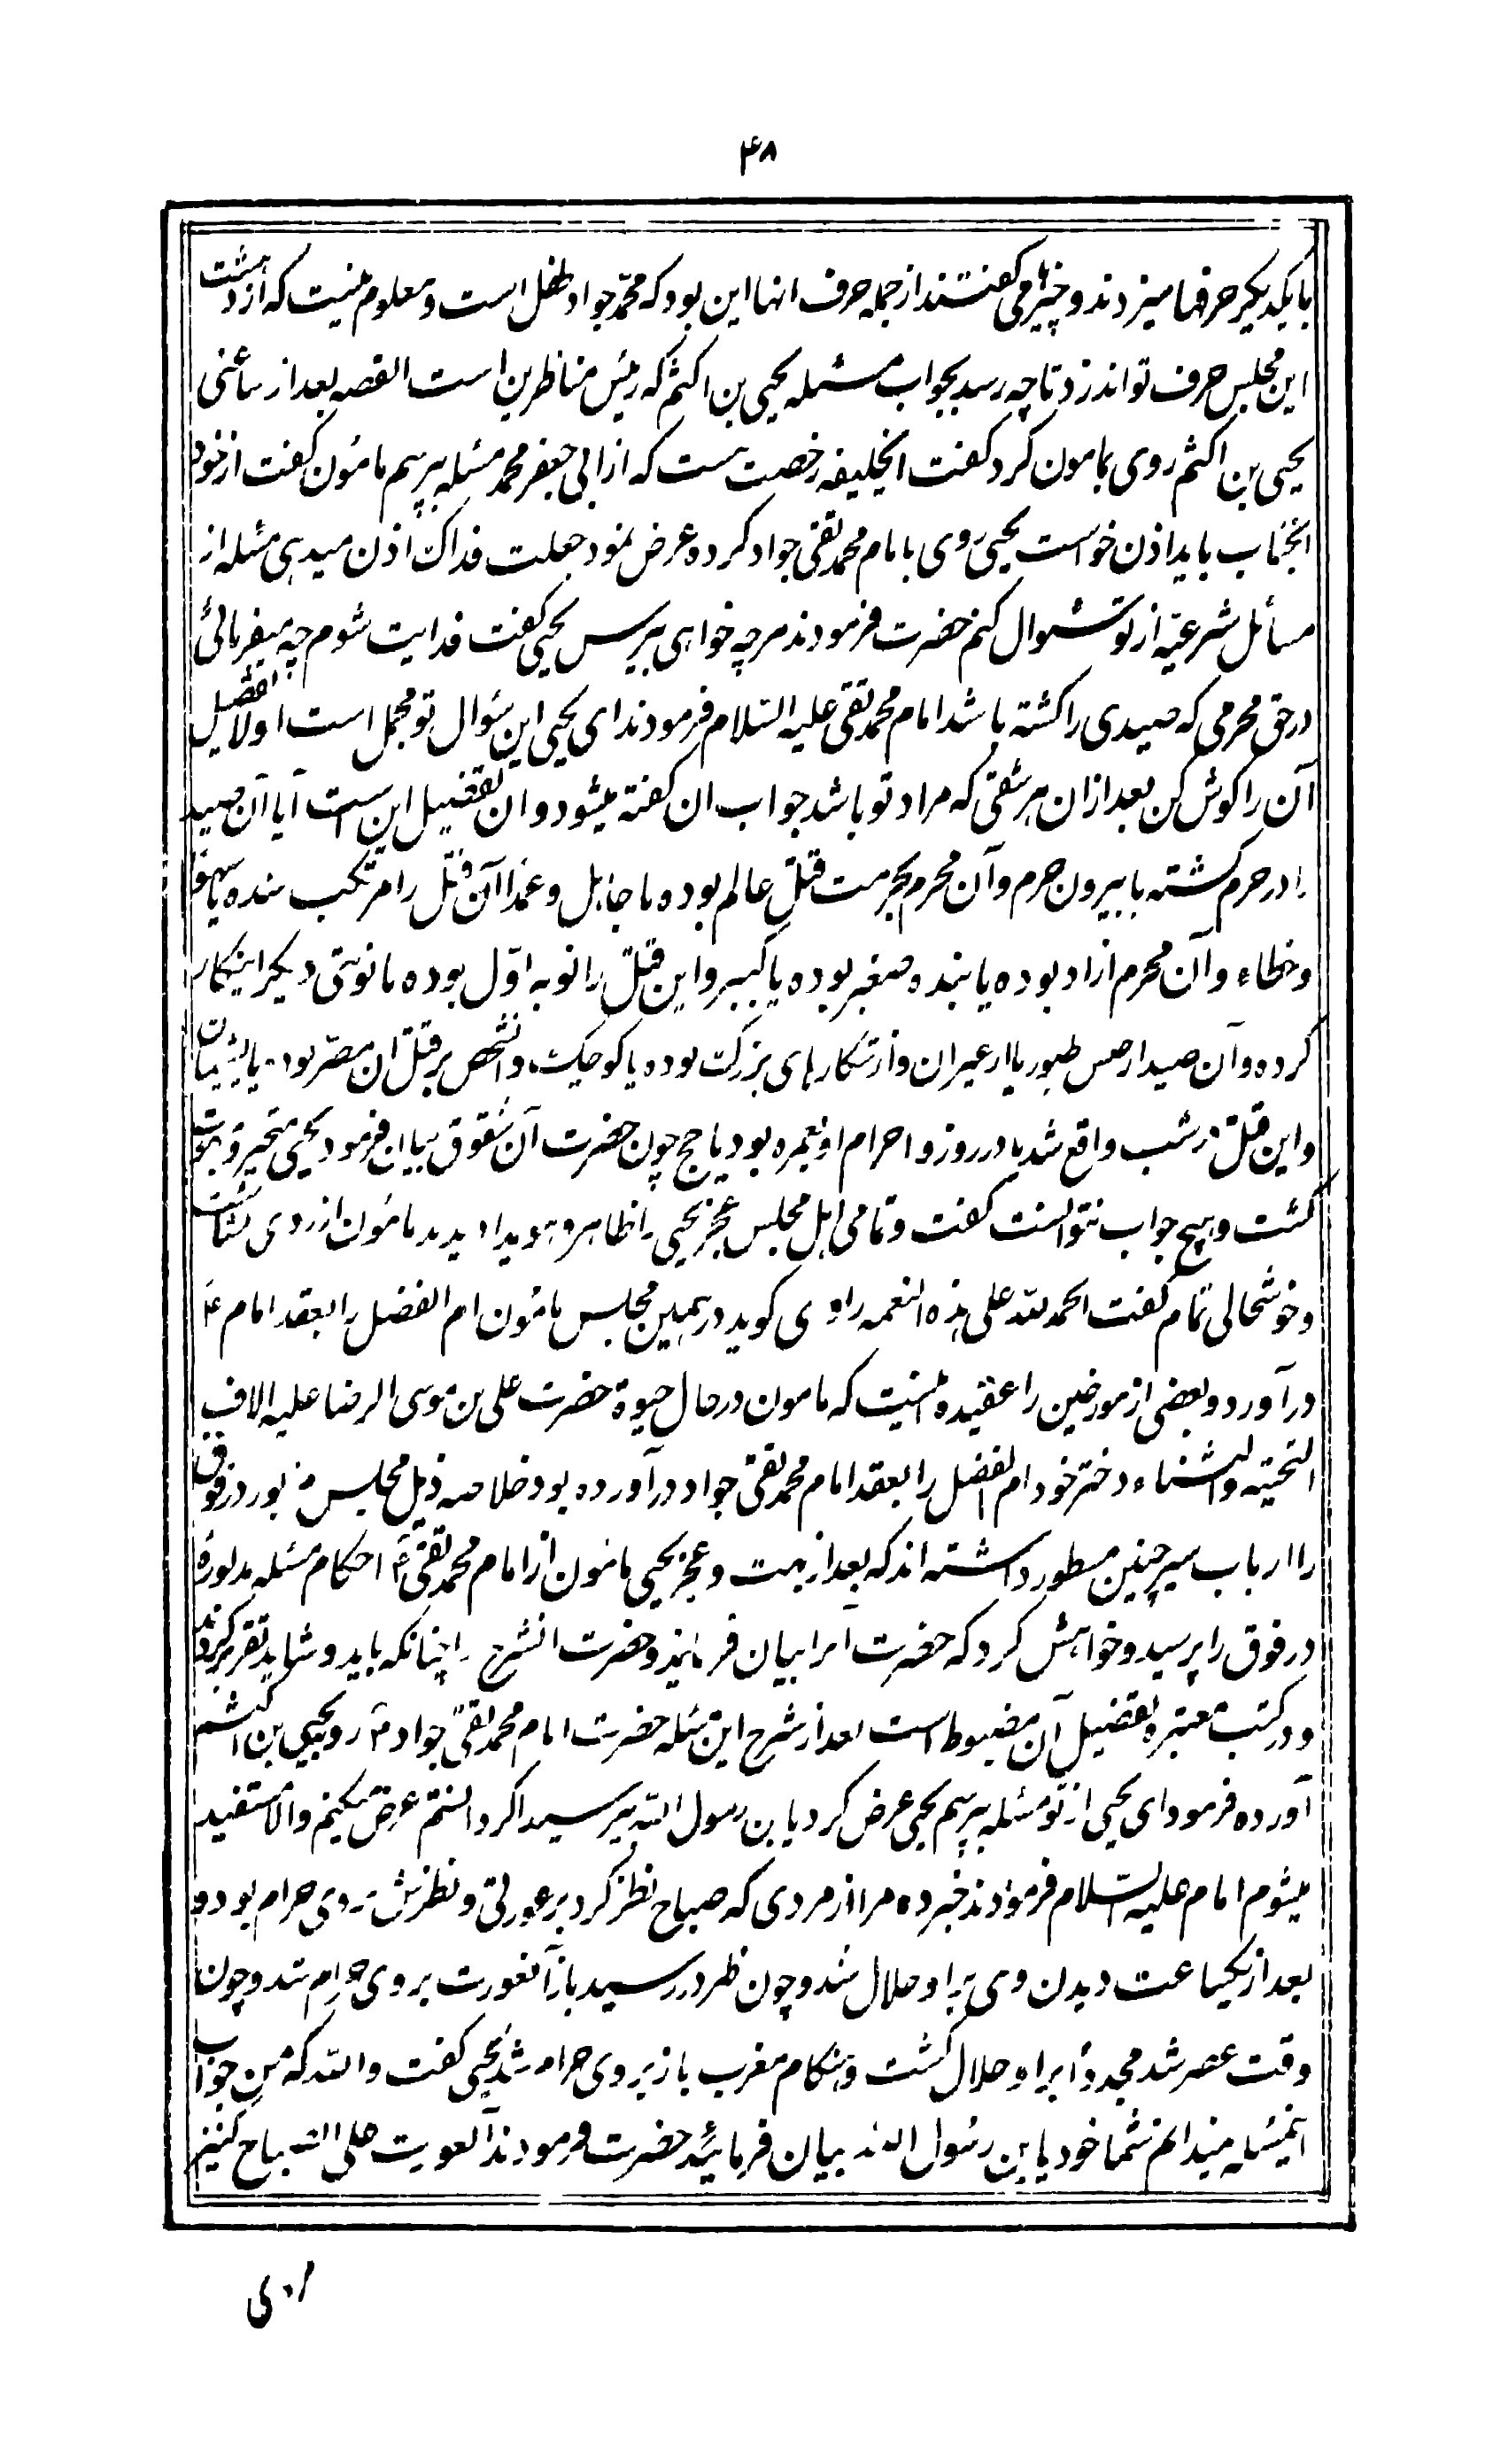 ۴۸
با یکدیگر حرفها میزدند و چیزها می کفتند از جمله حرف انها این بود که محمّد جواد طفل است و معلوم نیست که از دهشت
این مجلس حرف تواند زد تا چه رسد بجواب مسئله یحیی بن اکثم که رئیس مناظرین است القصه بعد از ساعتی
یحیی بن اکثم روی بمامون کرد کفت ایخلیفه رخصت هست که از ابی جعفر محمد مسئله بپرسم مامٔون کفت از خود
انجناب باید اذن خواست یحیی روی بامام محمد تقی جواد کرده عرض نمود جعلت فداک اذن میدهی مسئله از
مسائل شرعیّه از تو سٔوال کنم حضرت فرمودند هرچه خواهی بپرس یحیی کفت فدایت شوم چه میفرمائی
در حق محرمی که صیدی را کشته باشد امام محمد تقی علیه السّلام فرمودند ای یحیی این سٔوال تو مجمل است اولا تفصیل
آن را کوش کن بعد از ان هر شقی که مراد تو باشد جواب ان کفته میشود و ان تفصیل این است آیا آن صید
را در حرم کشته یا بیرون حرم و آن محرم بحرمت قتل عالم بوده یا جاهل و عمداً آن قتل را مرتکب شده یا سهوا
و خطاء و آن محرم ازاد بوده یا بنده صغیر بوده یا کبیر و این قتل را نوبه اوّل بوده یا نوبتی دیکر اینکار
کرده و آن صید از جنس طیور یا از غیر ان و از شکارهای بزرک بوده یا کوچک و انشخص بر قتل ان مصرّ بوده یا پشیمان
و این قتل در شب واقع شد یا در روز و احرام او بعمره بود یا حج چون حضرت آن شقوق بیان فرمود یحیی متحیر و مبهوت
کشت و هیچ جواب نتوانست کفت و تمامی اهل مجلس عجز یحیی را ظاهر و هویدا دیدند مامٔون از روی بشاشت
و خوشحالی تمام کفت الحمد لله علی هذه النعمه راوی کوید در همین مجلس مامٔون ام الفضل را بعقد امام ع
در آورد و بعضی از مورخین را عقیده اینست که مامون در حال حیوة حضرت علی بن موسی الرضا علیه الاف
التحیته والثناء دختر خود ام الفضل را بعقد امام محمد تقی جواد در آورده بود خلاصه ذیل مجلس مزبور در فوق
را ارباب سیر چنین مسطور داشته اند که بعد از بهت و عجز یحیی مامٔون از امام محمد تقی ع احکام مسئله مذکوره
در فوق را پرسید و خواهش کرد که حضرت آنرا بیان فرمایند و حضرت انشرح را چنانکه باید و شاید تقریر کردند
و در کتب معتبره تفصیل آن مضبوط است بعد از شرح این مسئله حضرت امام محمد تقی جواد ع رو بیحیی بن اکثم
آورده فرمود ای یحیی از تو مسئله بپرسم یحیی عرض کرد یا بن رسول الله بپرسید اکر دانستم عرض میکنم والا مستفید
میشوم امام علیه السّلام فرمودند خبر ده مرا از مردی که صباح نظر کرد بر عورتی و نظرش بر وی حرام بود و
بعد از یکساعت دیدن وی بر او حلال شد و چون ظهر در رسید باز آنعورت بر وی حرام شد و چون
وقت عصر شد مجدداً بر او حلال کشت و هنکام مغرب باز بر وی حرام شد یحیی کفت والله که من جواب
اینمسئله میندانم شما خود یا بن رسول الله بیان فرمائید حضرت فرمودند آنعورت علی الصباح کنیز